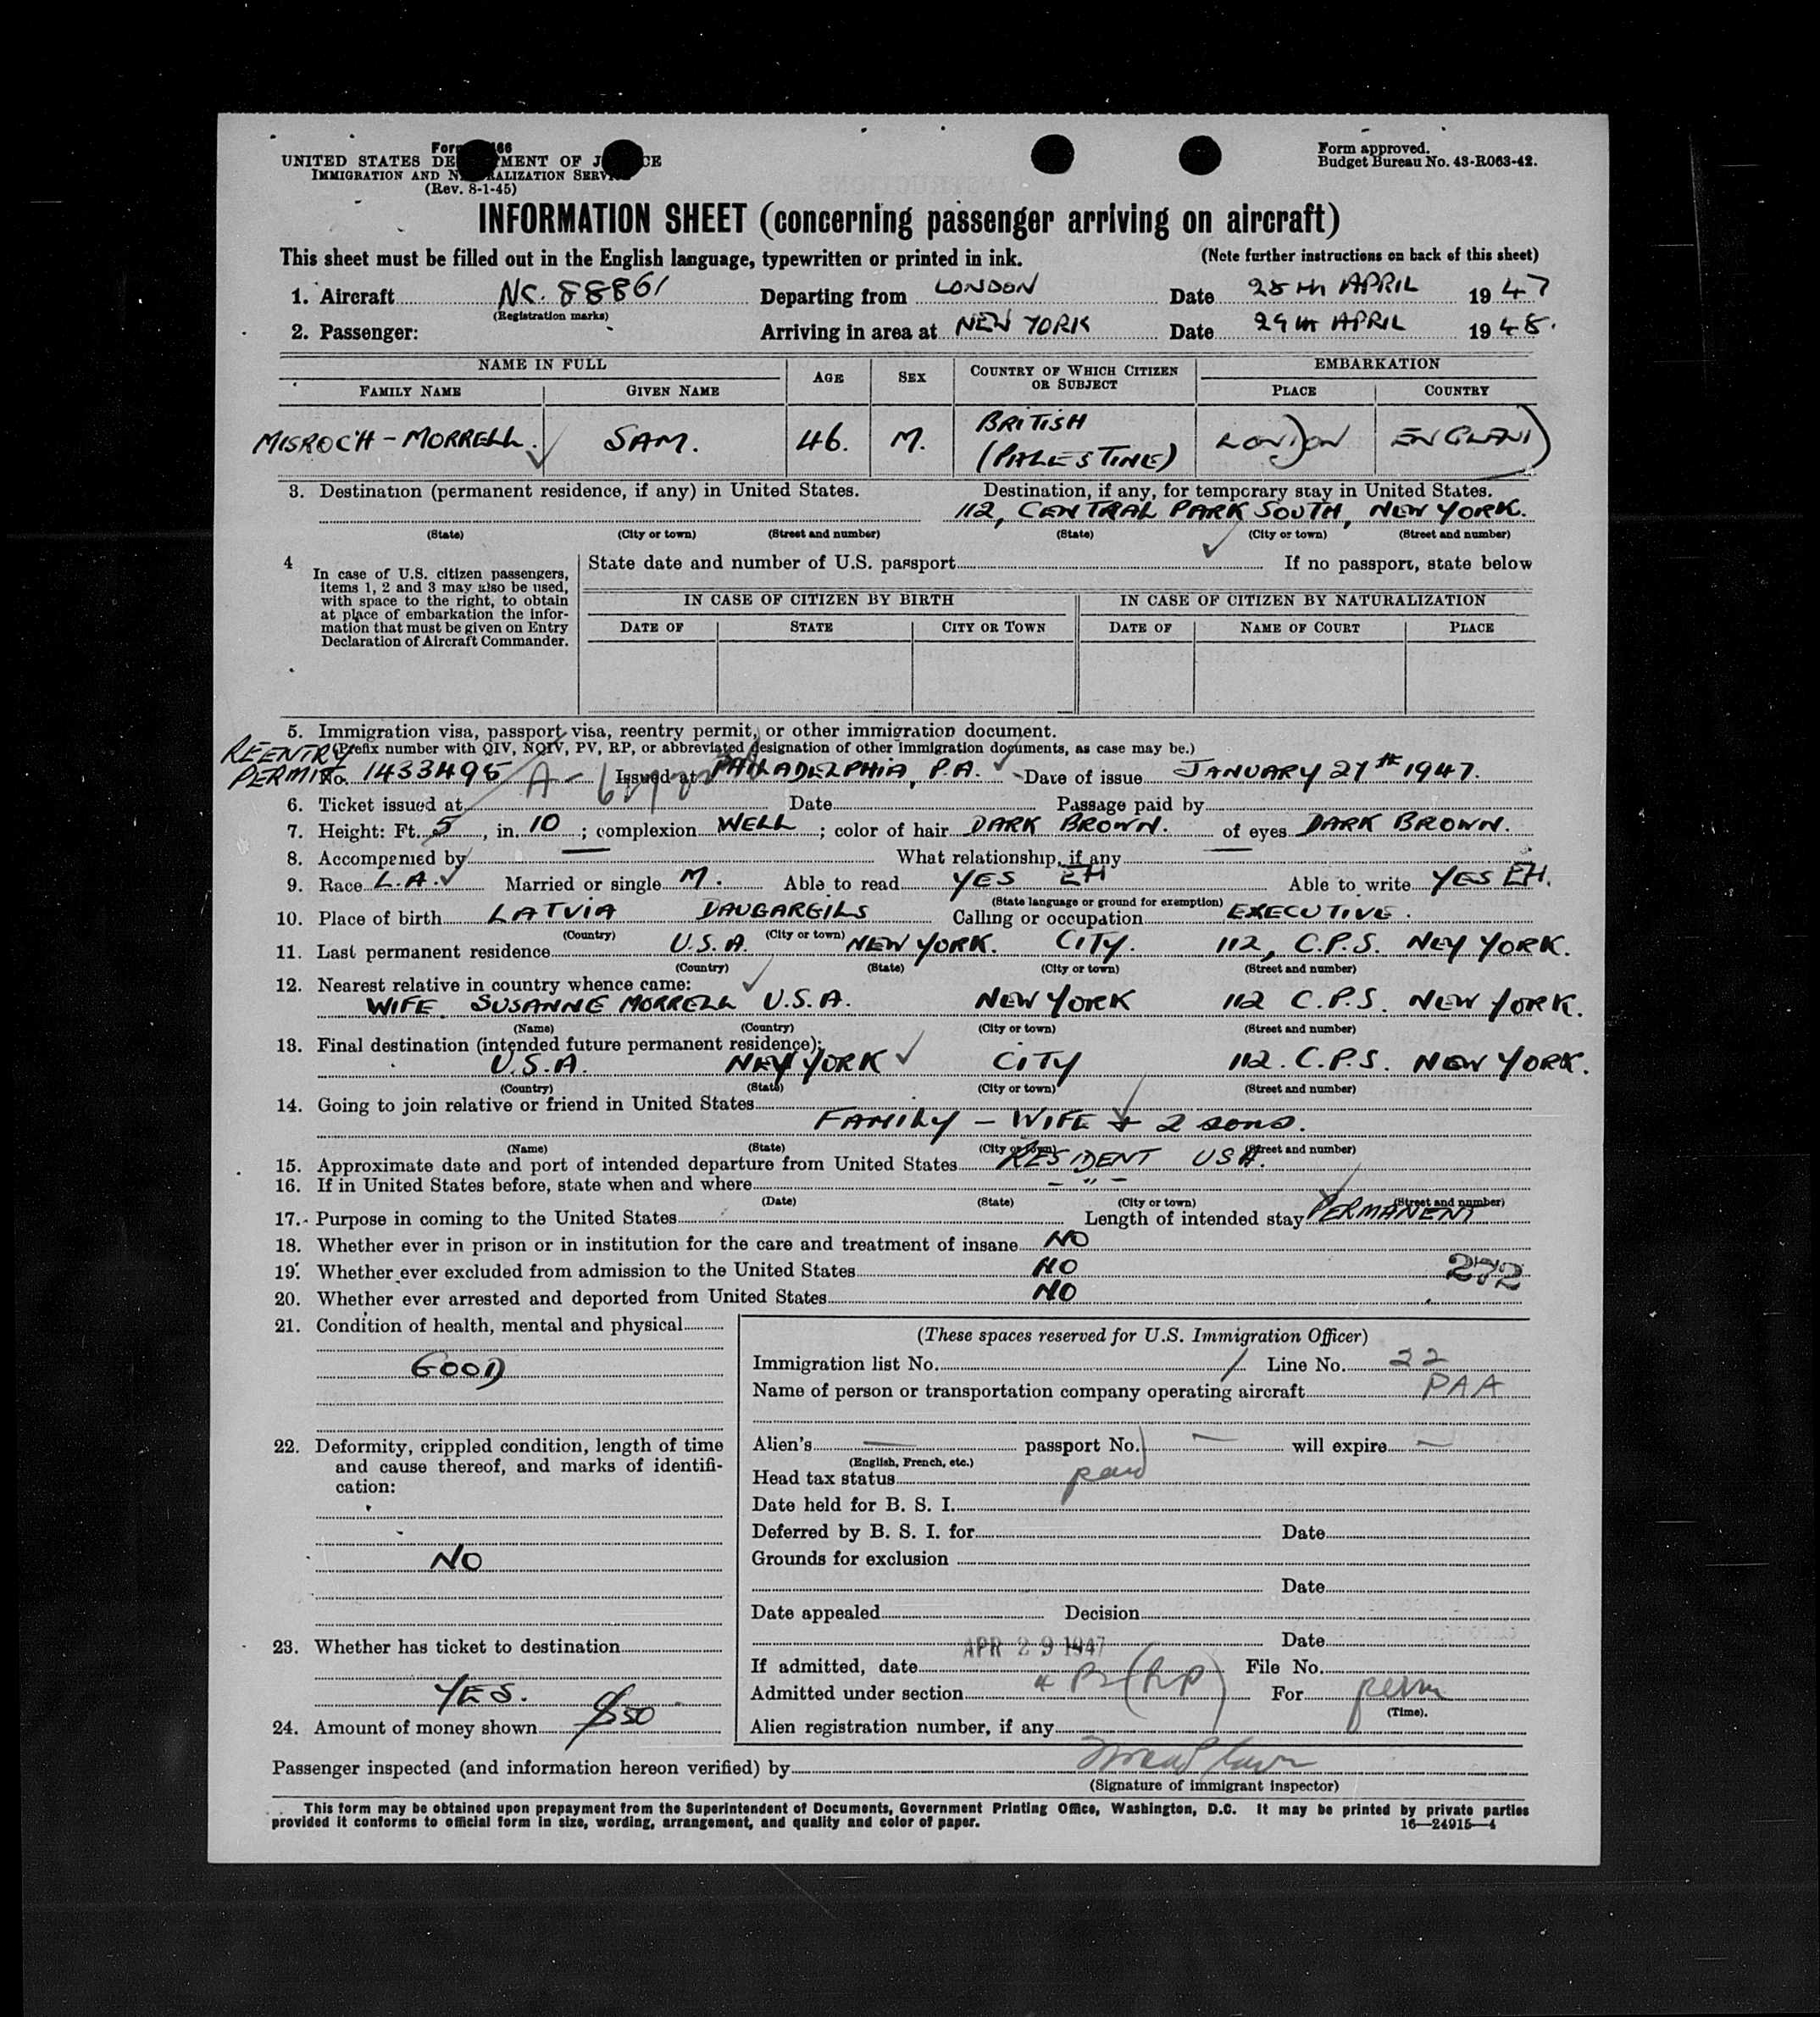 Form
UNITED STATES DE MENT OF J CE
IMMIGRATION AND N ALIZATION SERV
(Rev. 8-1-45)
Form approved.
Budget Bureau No. 43-R063-42.
INFORMATION SHEET (concerning passenger arriving on aircraft)
This sheet must be filled out in the English language, typewritten or printed in ink. (Note further instructions on back of this sheet)
1. Aircraft NC. 88861 Departing from LONDON Date 28TH APRIL 1947
(Registration marks)
2. Passenger: Arriving in area at NEW YORK Date 29TH APRIL 1948.
NAME IN FULL AGE SEX COUNTRY OF WHICH CITIZEN OR SUBJECT EMBARKATION
FAMILY NAME GIVEN NAME PLACE COUNTRY
MISROCH - MORRELL. SAM. 46. M. BRITISH (PALESTINE) LONDON ENGLAND
3. Destination (permanent residence, if any) in United States. Destination, if any, for temporary stay in United States.
112, CENTRAL PARK SOUTH, NEW YORK.
(State) (City or town) (Street and number) (State) (City or town) (Street and number)
4 In case of U.S. citizen passengers, items 1, 2 and 3 may also be used, with space to the right, to obtain at place of embarkation the information that must be given on Entry Declaration of Aircraft Commander.
State date and number of U.S. passport If no passport, state below
IN CASE OF CITIZEN BY BIRTH IN CASE OF CITIZEN BY NATURALIZATION
DATE OF STATE CITY OR TOWN DATE OF NAME OF COURT PLACE
5. Immigration visa, passport visa, reentry permit, or other immigration document.
(Prefix number with QIV, NQIV, PV, RP, or abbreviated designation of other immigration documents, as case may be.)
REENTRY PERMIT No. 1433495 A- Issued at PHILADELPHIA, P.A. Date of issue JANUARY 27TH 1947.
6. Ticket issued at Date Passage paid by
7. Height: Ft. 5, in. 10; complexion WELL; color of hair DARK BROWN. of eyes DARK BROWN.
8. Accompanied by — What relationship, if any —
9. Race L.A. Married or single M. Able to read YES EH Able to write YES EH.
(State language or ground for exemption)
10. Place of birth LATVIA DAUGARGILS Calling or occupation EXECUTIVE.
(Country) (City or town)
11. Last permanent residence U.S.A. NEW YORK. CITY. 112, C.P.S. NEY YORK.
(Country) (State) (City or town) (Street and number)
12. Nearest relative in country whence came:
WIFE. SUSANNE MORRELL U.S.A. NEW YORK 112 C.P.S. NEW YORK.
(Name) (Country) (City or town) (Street and number)
13. Final destination (intended future permanent residence):
U.S.A. NEW YORK CITY 112. C.P.S. NEW YORK.
(Country) (State) (City or town) (Street and number)
14. Going to join relative or friend in United States
FAMILY - WIFE + 2 SONS.
(Name) (State) (City or town) (Street and number)
15. Approximate date and port of intended departure from United States RESIDENT USA.
16. If in United States before, state when and where - " -
(Date) (State) (City or town) (Street and number)
17. Purpose in coming to the United States Length of intended stay PERMANENT
18. Whether ever in prison or in institution for the care and treatment of insane NO
19. Whether ever excluded from admission to the United States NO 272
20. Whether ever arrested and deported from United States NO
21. Condition of health, mental and physical
GOOD
22. Deformity, crippled condition, length of time and cause thereof, and marks of identification:
NO
23. Whether has ticket to destination
YES.
24. Amount of money shown $50
(These spaces reserved for U.S. Immigration Officer)
Immigration list No. / Line No. 22
Name of person or transportation company operating aircraft PAA
Alien's — passport No. — will expire —
(English, French, etc.)
Head tax status paid
Date held for B. S. I.
Deferred by B. S. I. for Date
Grounds for exclusion
Date
Date appealed Decision
Date
If admitted, date APR 29 1947 File No.
Admitted under section For perm
(Time).
Alien registration number, if any
Passenger inspected (and information hereon verified) by
(Signature of immigrant inspector)
This form may be obtained upon prepayment from the Superintendent of Documents, Government Printing Office, Washington, D.C. It may be printed by private parties
provided it conforms to official form in size, wording, arrangement, and quality and color of paper. 16—24915—4